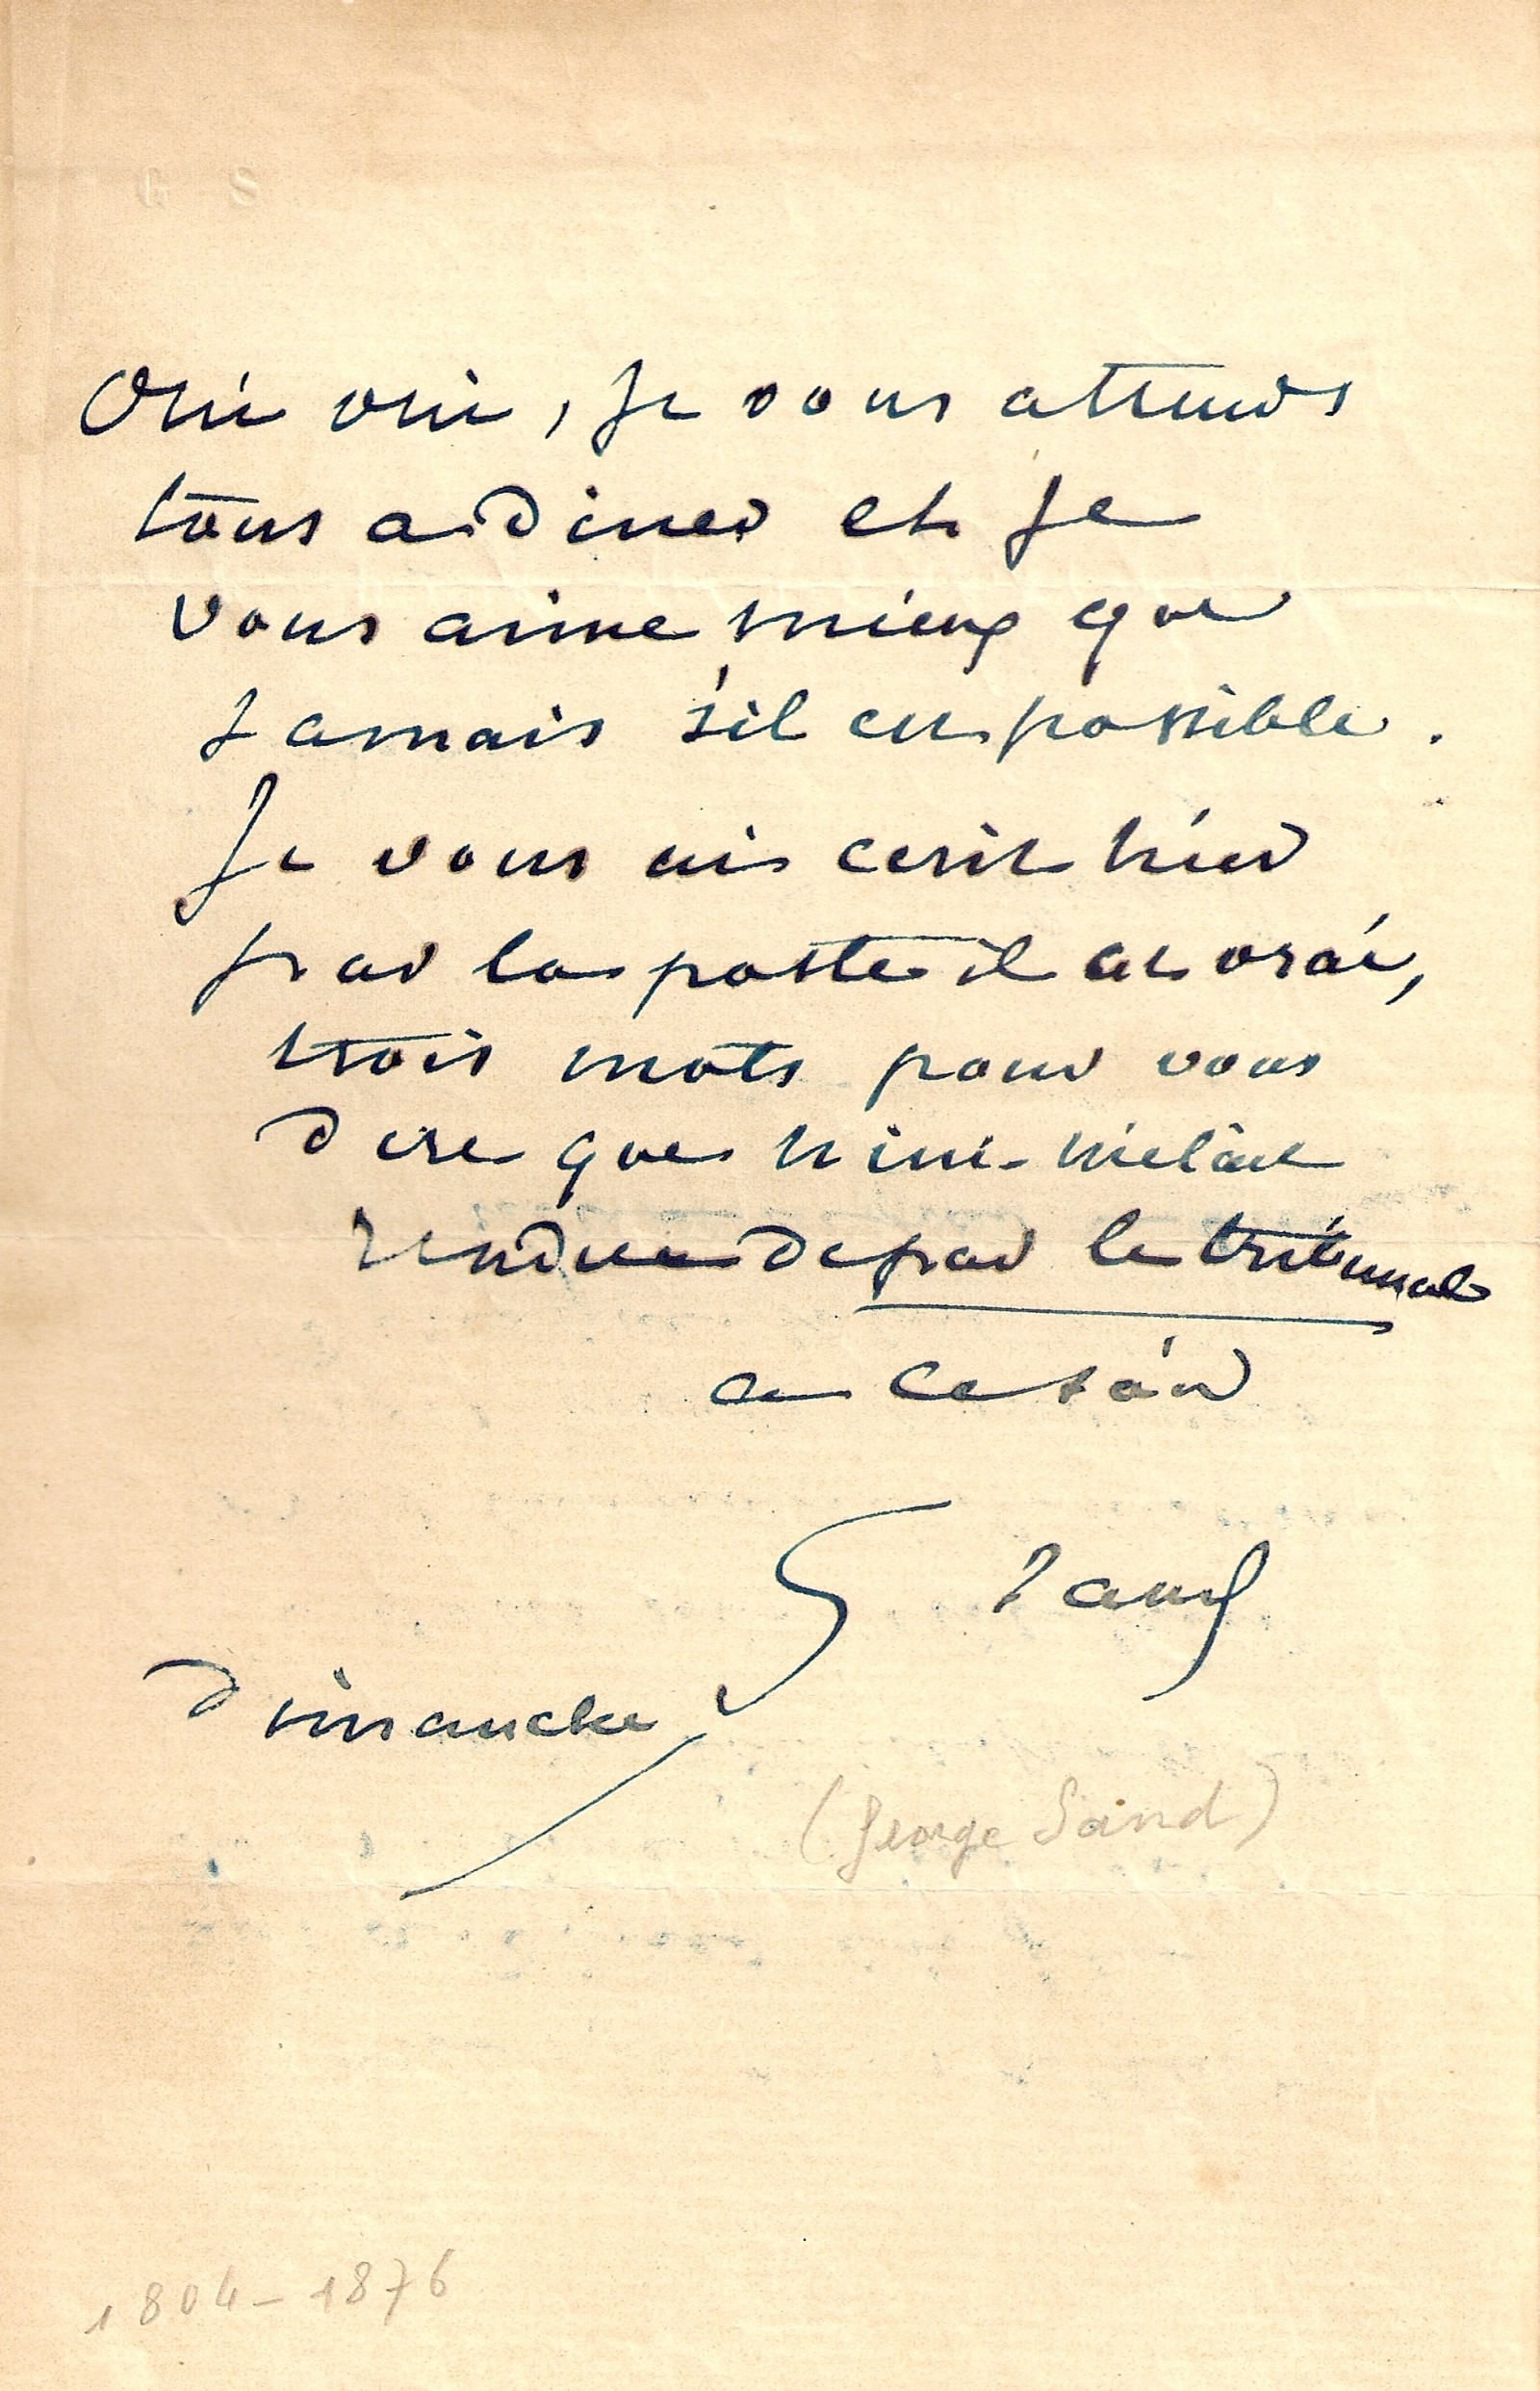 G S
Oui oui, je vous attends
tous a diner et je
vous aime mieux que
jamais s'il est possible.
Je vous ai ecrit hier
par la poste il est vrai,
trois mots pour vous
dire que Nini m'etait
rendue de par le tribunal
a ce soir
G Sand
Dimanche
(George Sand)
1804-1876